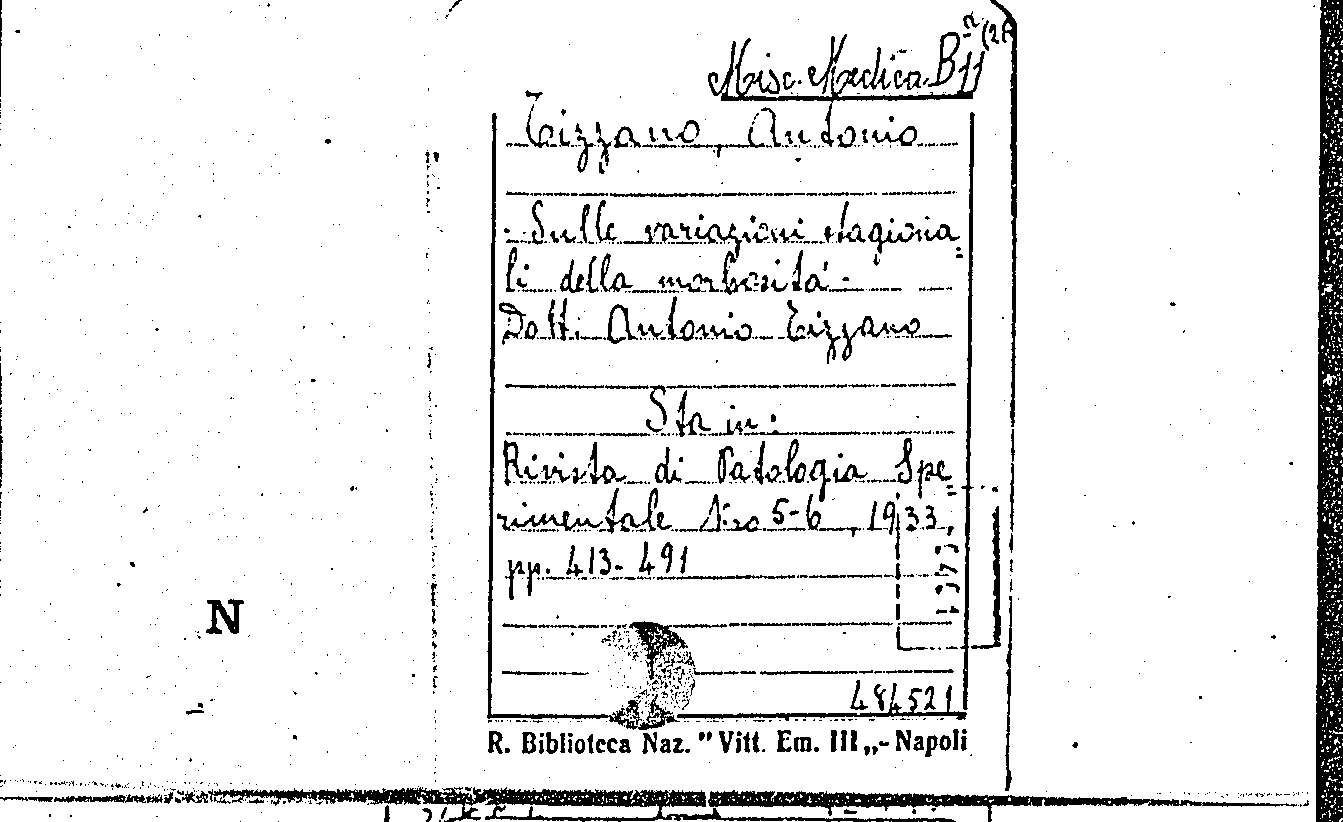 Misc. Medica B 11
Tizzano, Antonio
- Sulle variazioni stagiona„
li della morbosità -
Dott. Antonio Tizzano
Sta in:
Rivista di Patologia Spe„
rimentale N.ro 5-6, 1933,
pp. 413-491
N
484521
R. Biblioteca Naz. "Vitt. Em. III„ - Napoli